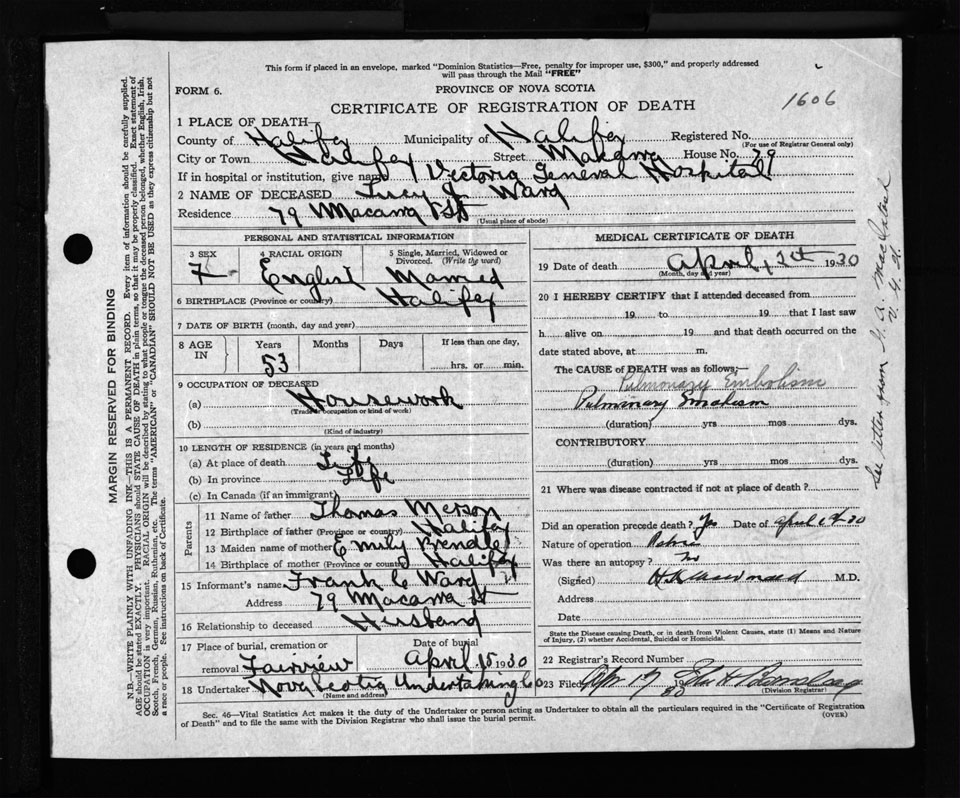 This form if placed in an envelope, marked "Dominion Statistics—Free, penalty for improper use, $300," and properly addressed
will pass through the Mail "FREE"
FORM 6.
PROVINCE OF NOVA SCOTIA
CERTIFICATE OF REGISTRATION OF DEATH
1606
1 PLACE OF DEATH—
County of Halifax Municipality of Halifax Registered No.
(For use of Registrar General only)
City or Town Halifax Street Macara House No. 79
If in hospital or institution, give name Victoria General Hospital
2 NAME OF DECEASED Lucy J Ward
Residence 79 Macara St
(Usual place of abode)
PERSONAL AND STATISTICAL INFORMATION
3 SEX 4 RACIAL ORIGIN 5 Single, Married, Widowed or
Divorced. (Write the word)
F English Married
6 BIRTHPLACE (Province or country) Halifax
7 DATE OF BIRTH (month, day and year)
8 AGE IN Years Months Days If less than one day,
53 hrs. or min.
9 OCCUPATION OF DECEASED
(a) Housework
(Trade or occupation or kind of work)
(b)
(Kind of industry)
10 LENGTH OF RESIDENCE (in years and months)
(a) At place of death Life
(b) In province Life
(c) In Canada (if an immigrant)
Parents
11 Name of father Thomas Merson
12 Birthplace of father (Province or country) Halifax
13 Maiden name of mother Emily Brendle
14 Birthplace of mother (Province or country) Halifax
15 Informant's name Frank C Ward
Address 79 Macara St
16 Relationship to deceased Husband
17 Place of burial, cremation or Date of burial
removal Fairview April 15 1930
18 Undertaker Nova Scotia Undertaking Co
(Name and address)
MEDICAL CERTIFICATE OF DEATH
19 Date of death April, 1930
(Month, day and year)
20 I HEREBY CERTIFY that I attended deceased from
19 to 19 that I last saw
h alive on 19 and that death occurred on the
date stated above, at m.
The CAUSE of DEATH was as follows;—
Pulmonary Embolism
Pulmonary Embolism
(duration) yrs mos dys.
CONTRIBUTORY
(duration) yrs mos dys.
21 Where was disease contracted if not at place of death?
Did an operation precede death? Yes Date of April 30
Nature of operation
Was there an autopsy? No
(Signed) M.D.
Address
Date
State the Disease causing Death, or in death from Violent Causes, state (1) Means and Nature
of Injury, (2) whether Accidental, Suicidal or Homicidal.
22 Registrar's Record Number
23 Filed Apr 17 1930 John H
(Division Registrar)
Sec. 46—Vital Statistics Act makes it the duty of the Undertaker or person acting as Undertaker to obtain all the particulars required in the "Certificate of Registration
of Death" and to file the same with the Division Registrar who shall issue the burial permit.
(OVER)
MARGIN RESERVED FOR BINDING
N.B.—WRITE PLAINLY WITH UNFADING INK—THIS IS A PERMANENT RECORD. Every item of information should be carefully supplied.
AGE should be stated EXACTLY. PHYSICIANS should STATE CAUSE OF DEATH in plain terms, so that it may be properly classified. Exact statement of
OCCUPATION is very important. RACIAL ORIGIN will be described by stating to what people or tongue the deceased person belonged, whether English, Irish,
Scotch, French, German, Russian, Ruthenian, etc. The terms "AMERICAN" or "CANADIAN" SHOULD NOT BE USED as they express citizenship but not
a race or people. See instructions on back of Certificate.
See letter from
V. G. H.